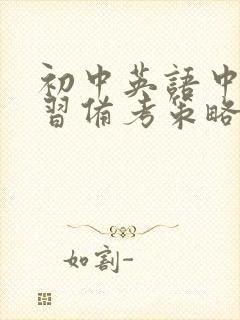 初中英語中
習備考策略
如割-